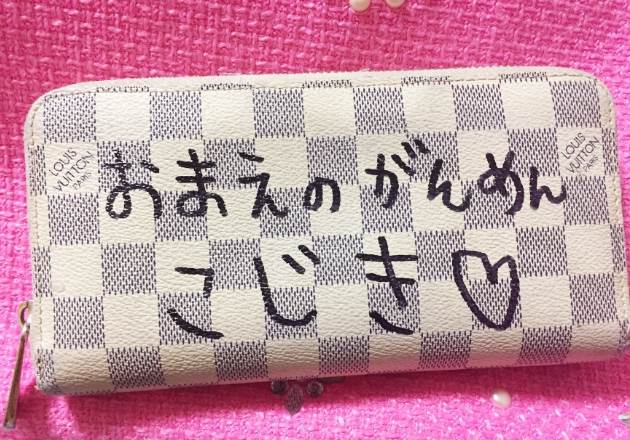 LOUIS
VUITTON
PARIS
おまえの がんめん
こじき♡
LOUIS
VUITTON
PARIS